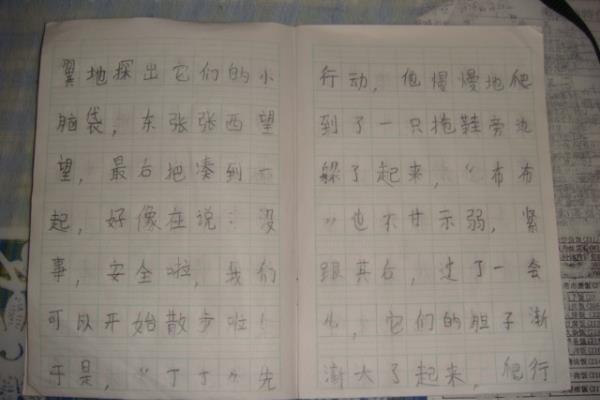 翼地探出它们的小
脑袋，东张张西望
望，最后把凑到一
起，好像在说：没
事，安全啦，我们
可以开始散步啦！
于是，“丁丁”先
行动，他慢慢地爬
到了一只拖鞋旁边
躲了起来，“布布
”也不甘示弱，紧
跟其后，过了一会
儿，它们的胆子渐
渐大了起来，爬行